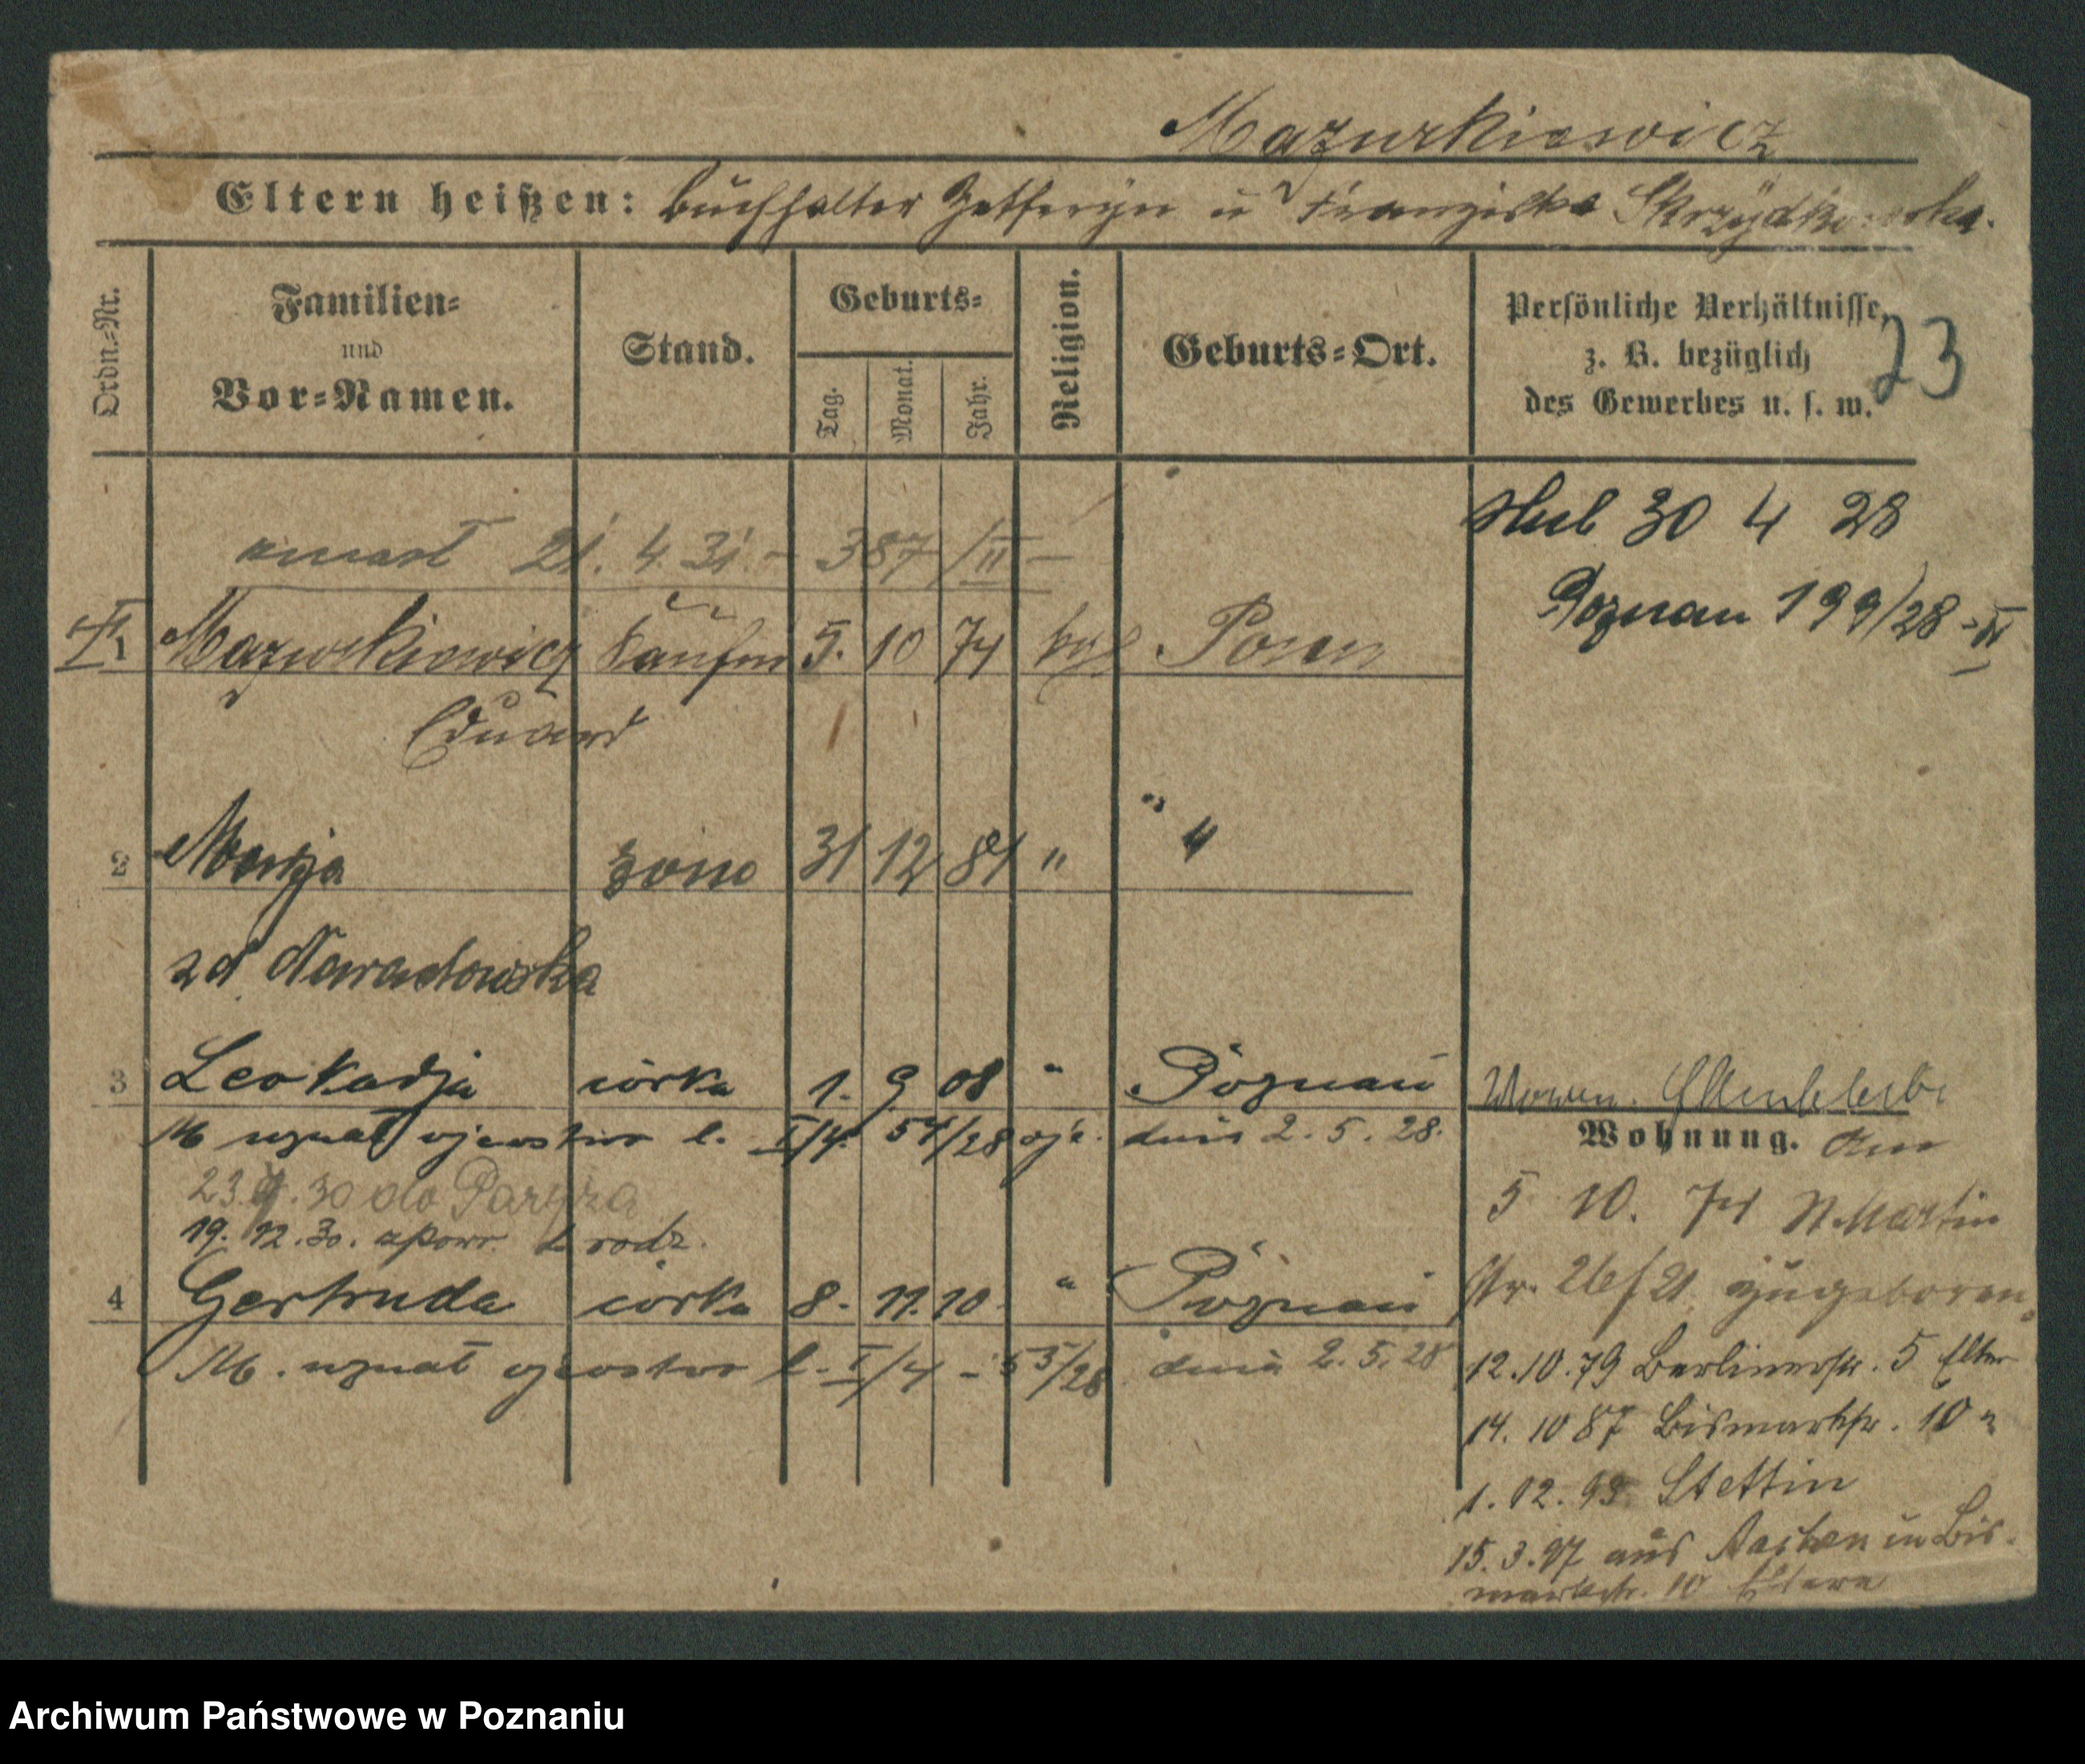 Mazurkiewicz
Eltern heißen: Buchhalter u Franziska
Ordn.-Nr.
Familien-
und
Vor-Namen.
Stand.
Geburts-
Tag.
Monat.
Jahr.
Religion.
Geburts-Ort.
Persönliche Verhältnisse,
z. B. bezüglich
des Gewerbes u. s. w.
23
ślub 30 4 28
Poznań 199/28-II
zmarł 21. 4. 31. - 387/II -
1 Mazurkiewicz Kaufm 5. 10 74 kath Posen
Eduard
2 Marja żona 31 12 81 " "
zd Nawadowska
3 Leokadja córka 1. 9 08 " Poznań
M uznał ojcostwo l. I/4. 54/28 dnia 2. 5. 28.
23. 9. 30 do Paryża
19. 12. 30. z rodz.
4 Gertruda córka 8. 11. 10 " Poznań
M. uznał ojcostwo l. I/4 - 55/28 dnia 2. 5. 28
Wohnung. Am
5 10. 74 St Martin
str. 26/21. zugeboren
12. 10. 79 Berlinerstr. 5 Elter
14. 10 87 Bismarkstr. 10 "
1. 02. 93 Stettin
15. 3. 97 aus in Bis-
markstr. 10 Eltern
Archiwum Państwowe w Poznaniu